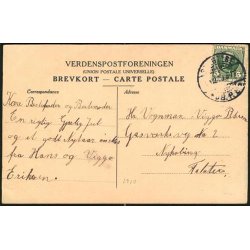 VERDENSPOSTFORENINGEN
(UNION POSTALE UNIVERSELLE)
BREVKORT — CARTE POSTALE
Correspondance
Adresse
Kære Bedstefader og Bedstemoder
En rigtig Glædelig Jul
og et godt Nytaar ønskes
fra Hans og Viggo
Eriksen.
Hr. Vognmand Viggo
Gasværksvej No 2
Nykøbing
Falster
1910